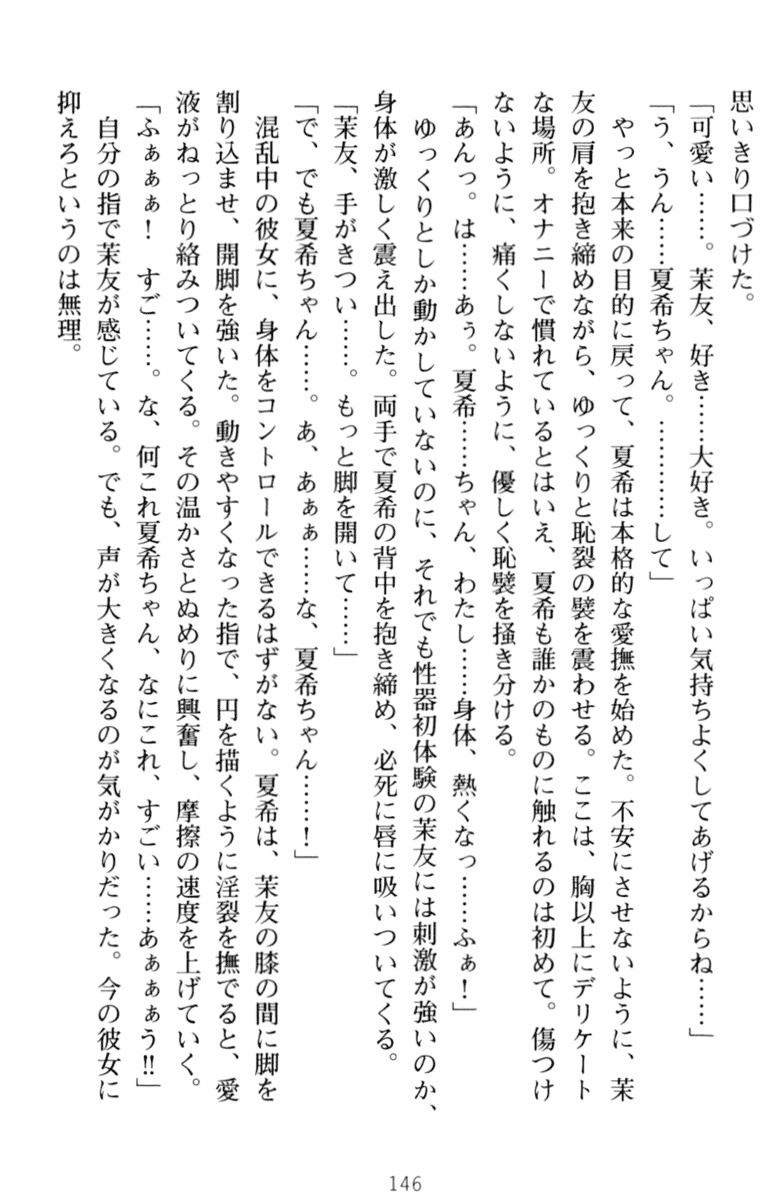 思いきり口づけた。
「可愛い……。茉友、好き……大好き。いっぱい気持ちよくしてあげるからね……」
「う、うん……夏希ちゃん。…………して」
やっと本来の目的に戻って、夏希は本格的な愛撫を始めた。不安にさせないように、茉
友の肩を抱き締めながら、ゆっくりと恥裂の襞を震わせる。ここは、胸以上にデリケート
な場所。オナニーで慣れているとはいえ、夏希も誰かのものに触れるのは初めて。傷つけ
ないように、痛くしないように、優しく恥襞を掻き分ける。
「あんっ。は……あぅ。夏希……ちゃん、わたし……身体、熱くなっ……ふぁ！」
ゆっくりとしか動かしていないのに、それでも性器初体験の茉友には刺激が強いのか、
身体が激しく震え出した。両手で夏希の背中を抱き締め、必死に唇に吸いついてくる。
「茉友、手がきつい……。もっと脚を開いて……」
「で、でも夏希ちゃん……。あ、あぁぁ……な、夏希ちゃん……！」
混乱中の彼女に、身体をコントロールできるはずがない。夏希は、茉友の膝の間に脚を
割り込ませ、開脚を強いた。動きやすくなった指で、円を描くように淫裂を撫でると、愛
液がねっとり絡みついてくる。その温かさとぬめりに興奮し、摩擦の速度を上げていく。
「ふぁぁぁ！　すご……。な、何これ夏希ちゃん、なにこれ、すごい……あぁぁぁう!!」
自分の指で茉友が感じている。でも、声が大きくなるのが気がかりだった。今の彼女に
抑えろというのは無理。
146